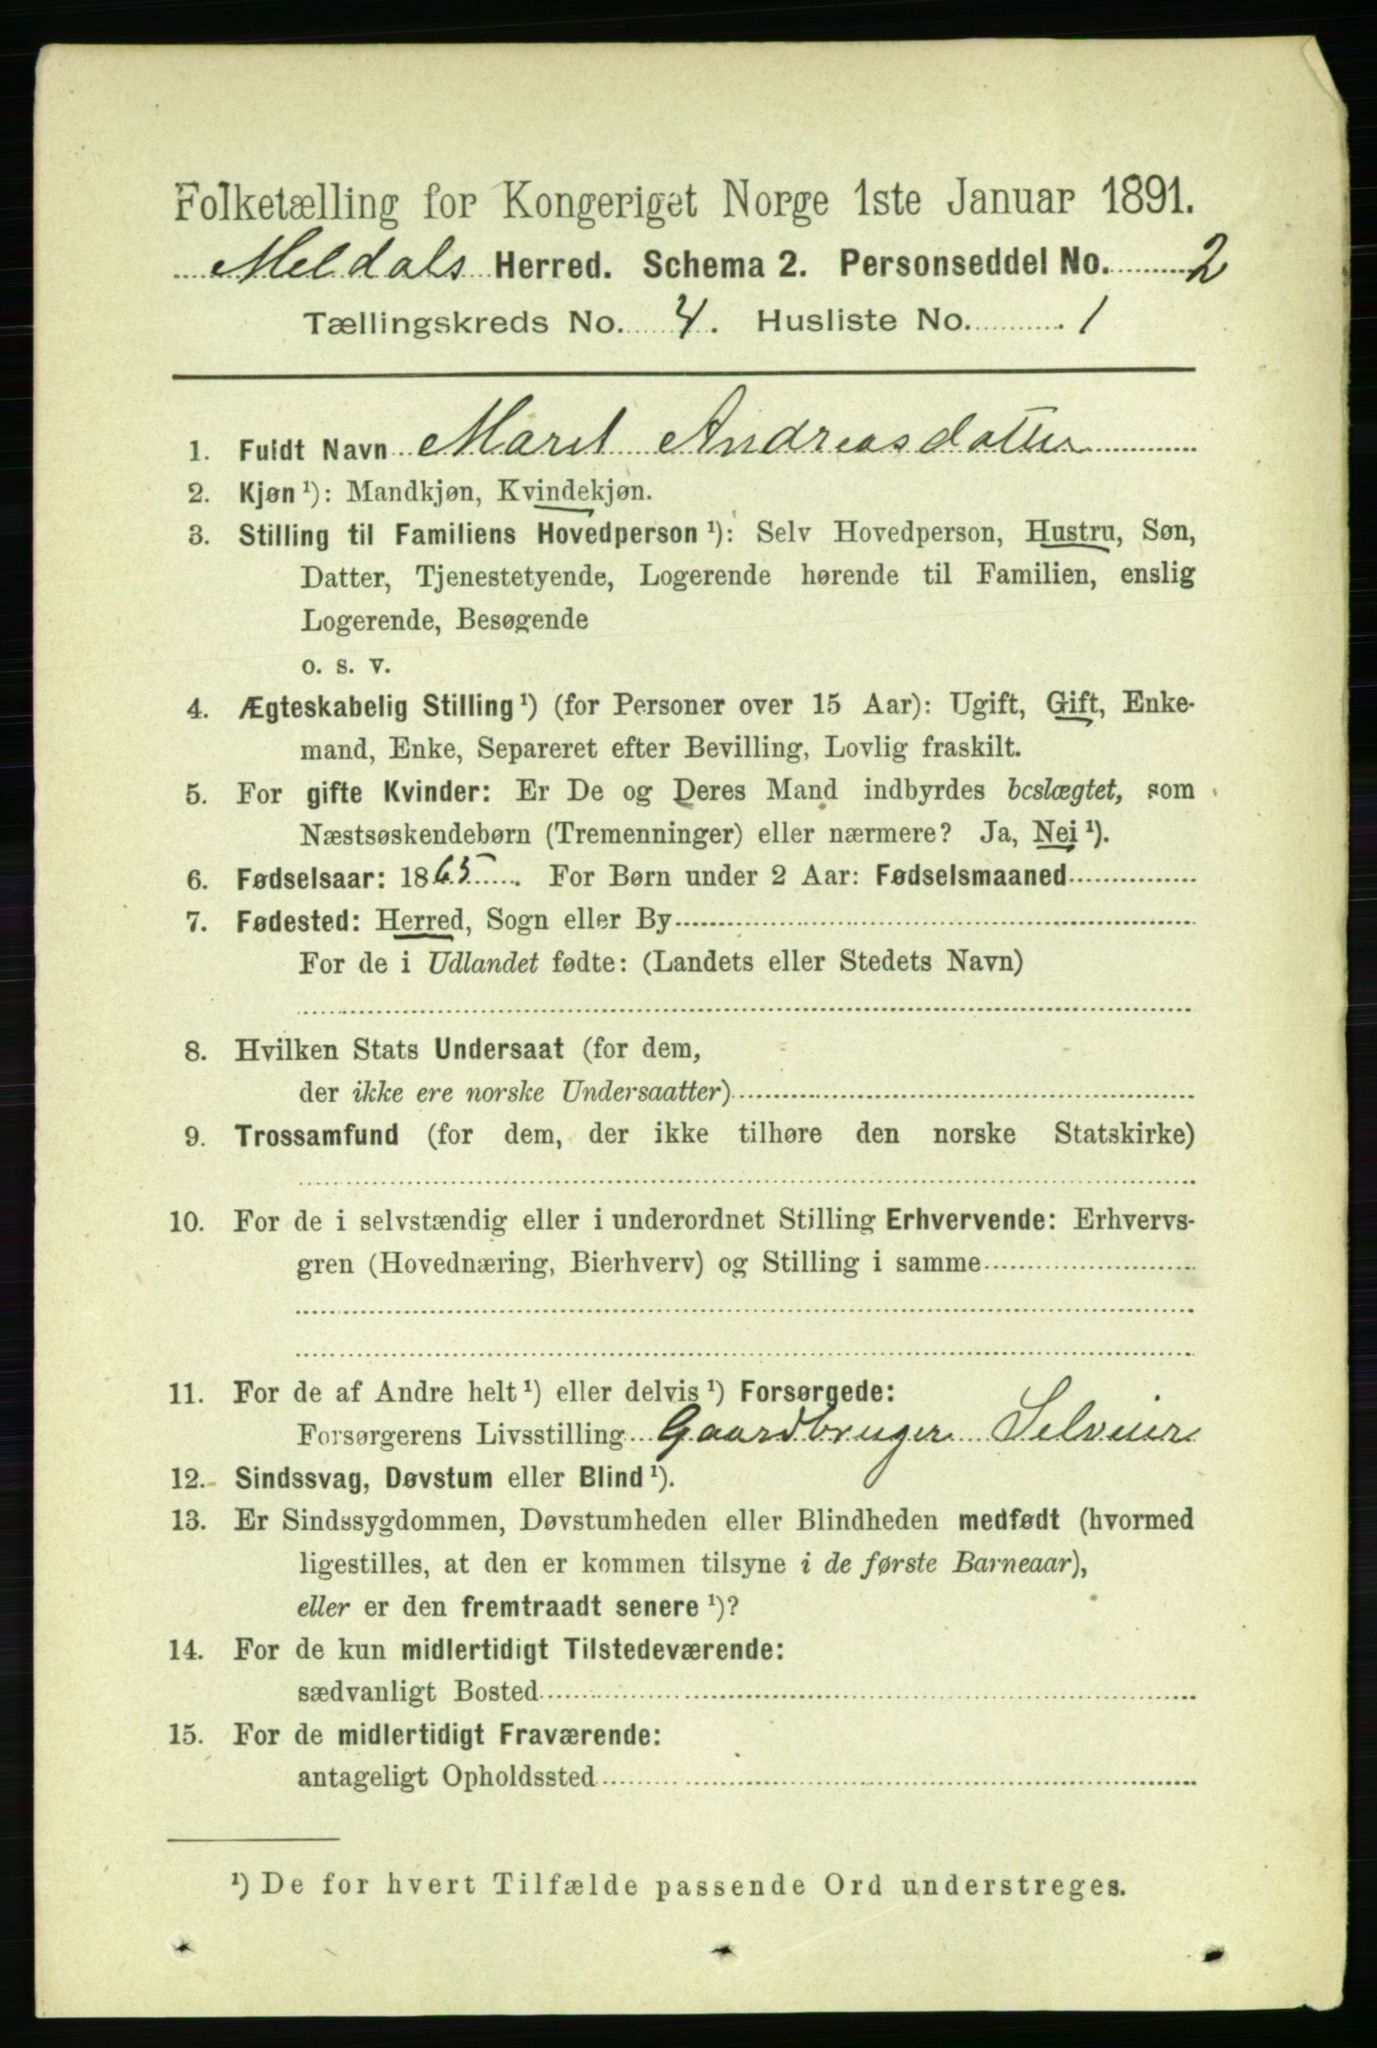 Folketælling for Kongeriget Norge 1ste Januar 1891.
Meldals Herred. Schema 2. Personseddel No. 2
Tællingskreds No. 4. Husliste No. 1
1. Fuldt Navn Marit Andreasdatter
2. Kjøn ¹): Mandkjøn, Kvindekjøn.
3. Stilling til Familiens Hovedperson ¹): Selv Hovedperson, Hustru, Søn,
Datter, Tjenestetyende, Logerende hørende til Familien, enslig
Logerende, Besøgende
o. s. v.
4. Ægteskabelig Stilling ¹) (for Personer over 15 Aar): Ugift, Gift, Enke-
mand, Enke, Separeret efter Bevilling, Lovlig fraskilt.
5. For gifte Kvinder: Er De og Deres Mand indbyrdes beslægtet, som
Næstsøskendebørn (Tremenninger) eller nærmere? Ja, Nei ¹).
6. Fødselsaar: 1865. For Børn under 2 Aar: Fødselsmaaned
7. Fødested: Herred, Sogn eller By
For de i Udlandet fødte: (Landets eller Stedets Navn)
8. Hvilken Stats Undersaat (for dem,
der ikke ere norske Undersaatter)
9. Trossamfund (for dem, der ikke tilhøre den norske Statskirke)
10. For de i selvstændig eller i underordnet Stilling Erhvervende: Erhvervs-
gren (Hovednæring, Bierhverv) og Stilling i samme
11. For de af Andre helt ¹) eller delvis ¹) Forsørgede:
Forsørgerens Livsstilling Gaardbruger Selveier
12. Sindssvag, Døvstum eller Blind ¹).
13. Er Sindssygdommen, Døvstumheden eller Blindheden medfødt (hvormed
ligestilles, at den er kommen tilsyne i de første Barneaar),
eller er den fremtraadt senere ¹)?
14. For de kun midlertidigt Tilstedeværende:
sædvanligt Bosted
15. For de midlertidigt Fraværende:
antageligt Opholdssted
¹) De for hvert Tilfælde passende Ord understreges.